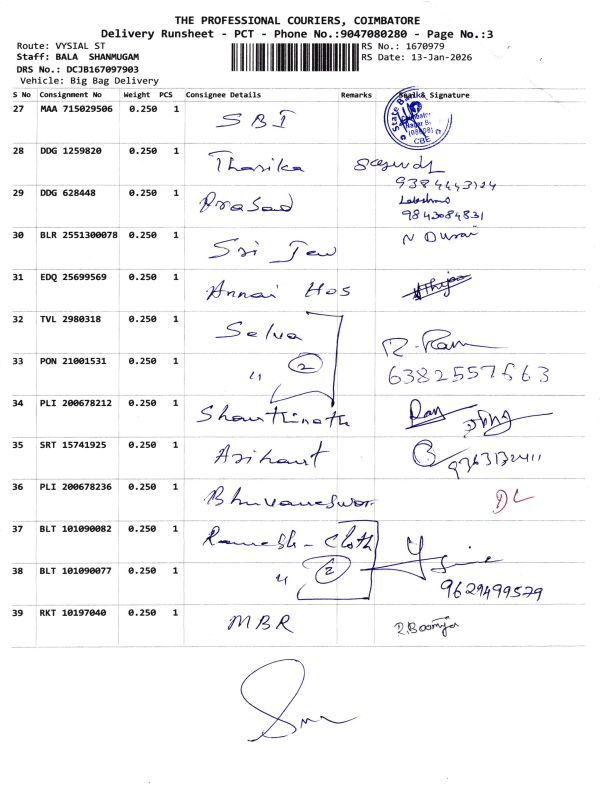 THE PROFESSIONAL COURIERS, COIMBATORE
Delivery Runsheet - PCT - Phone No.:9047080280 - Page No.:3
Route: VYSIAL ST
RS No.: 1670979
Staff: BALA SHANMUGAM
RS Date: 13-Jan-2026
DRS No.: DCJB167097903
Vehicle: Big Bag Delivery
S No Consignment No Weight PCS Consignee Details Remarks Seal & Signature
27 MAA 715029506 0.250 1 SBI
State B
CBE
28 DDG 1259820 0.250 1 Tharika
29 DDG 628448 0.250 1 Prasad
9843084831
30 BLR 2551300078 0.250 1 Sri Jew N Durai
31 EDQ 25699569 0.250 1 Annai Hos
32 TVL 2980318 0.250 1 Selva R. Ram
33 PON 21001531 0.250 1 " 2 6382557563
34 PLI 200678212 0.250 1 Shanthinath
35 SRT 15741925 0.250 1 Arihant
36 PLI 200678236 0.250 1 Bhuvaneswar DL
37 BLT 101090082 0.250 1 Ramesh - Cloth
38 BLT 101090077 0.250 1 " 2
9629499579
39 RKT 10197040 0.250 1 MBR R.Boomija